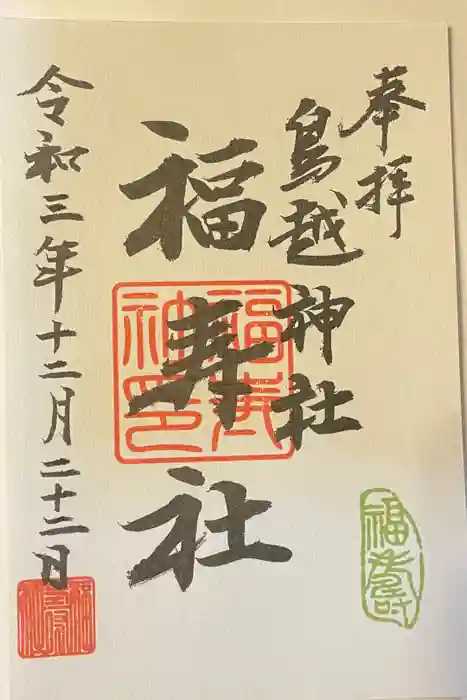 奉拝
鳥越神社
福寿社
令和三年十二月二十二日
福寿
神印
福寿